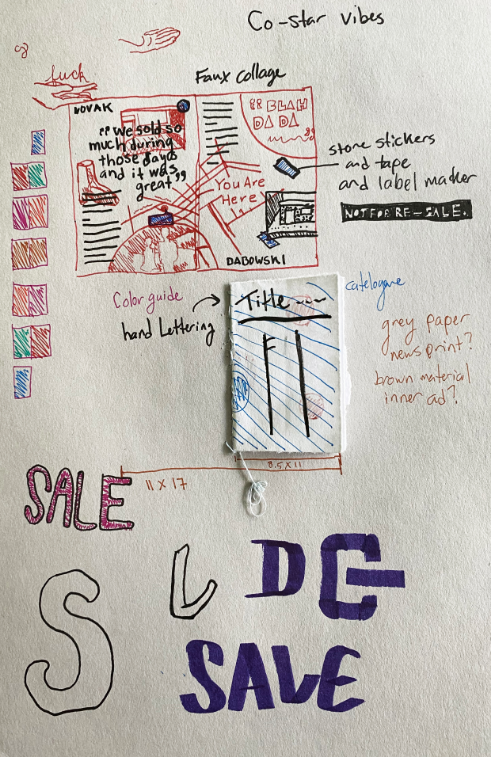 Co-star vibes
fuck
Faux collage
NOVAK
"we sold so
much during
those days
and it was
great"
"BLAH
DA DA
You Are
Here
DABOWSKI
store stickers
and tape
and label maker
NOT FOR RE-SALE.
Color guide
hand lettering
Title
catelogue
grey paper
newsprint?
brown material
inner ad?
8.5x11
11 x 17
SALE
S
L
DE-
SALE